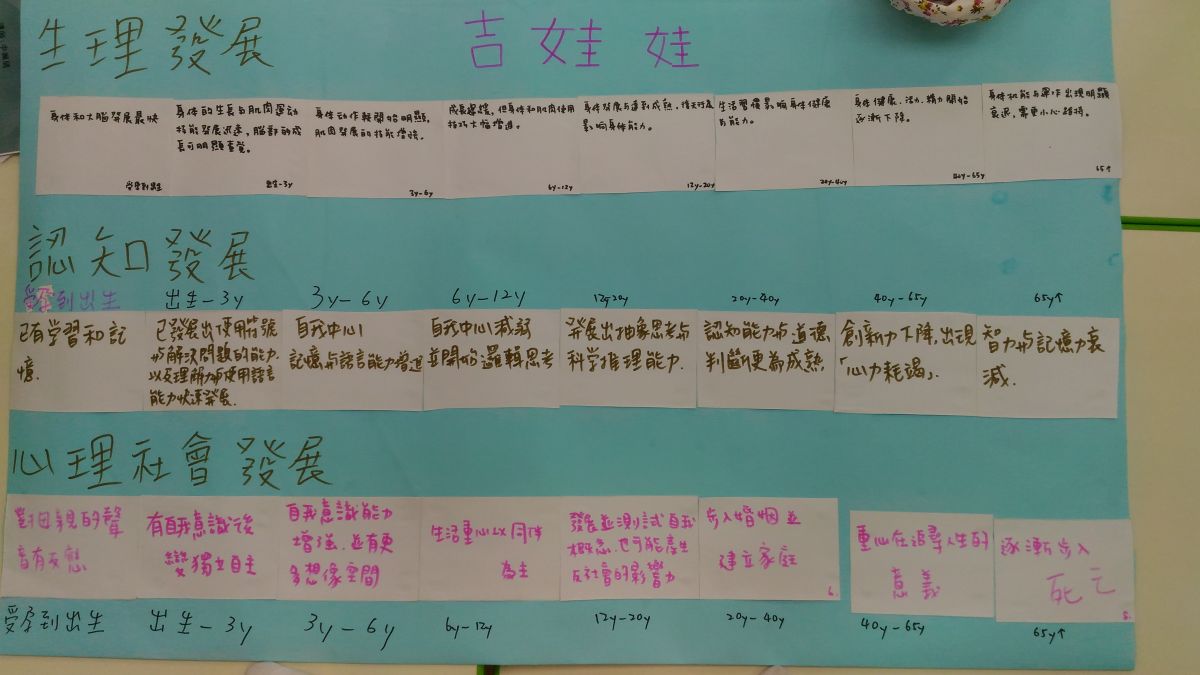 生理發展
吉娃娃
身体和大腦發展最快
受孕到出生
身体的生長与肌肉運动
技能發展迅速,腦部的成
長可明顯查覺。
出生-3y
身体动作軽開始明顯,
肌肉發展的技能增強。
3y-6y
成長緩緩,但身体和肌肉使用
技巧大幅增進。
6y-12y
身体發展与達到成熟,後天行為
影响身体能力。
12y-20y
生活習慣影响身体健康
与能力。
20y-40y
身体健康、活力、精力開始
逐漸下降。
40y-65y
身体机能与運作出現明顯
衰退,需更小心維持。
65↑
認知發展
受孕到出生
出生-3y
3y-6y
6y-12y
12y-20y
20y-40y
40y-65y
65y↑
已有学習和記
憶.
已發展出使用符號
与解決問題的能力.
以及理解力与使用語言
能力快速發展.
自我中心
記憶与語言能力增進
自我中心減弱
並開始邏輯思考
發展出抽象思考与
科学推理能力.
認知能力与道德
判斷更為成熟
創新力下降,出現
「心力耗竭」.
智力与記憶力衰
減.
心理社會發展
對母親的聲
音有反應
有自我意識後
變獨立自主
自我意識能力
增進.並有更
多想像空間
生活重心以同伴
為主
發展並測試自我
概念.也可能產生
反社會的影響力
步入婚姻並
建立家庭
6.
重心在追尋人生的
意義
逐漸步入
死亡
8.
受孕到出生
出生-3y
3y-6y
6y-12y
12y-20y
20y-40y
40y-65y
65y↑